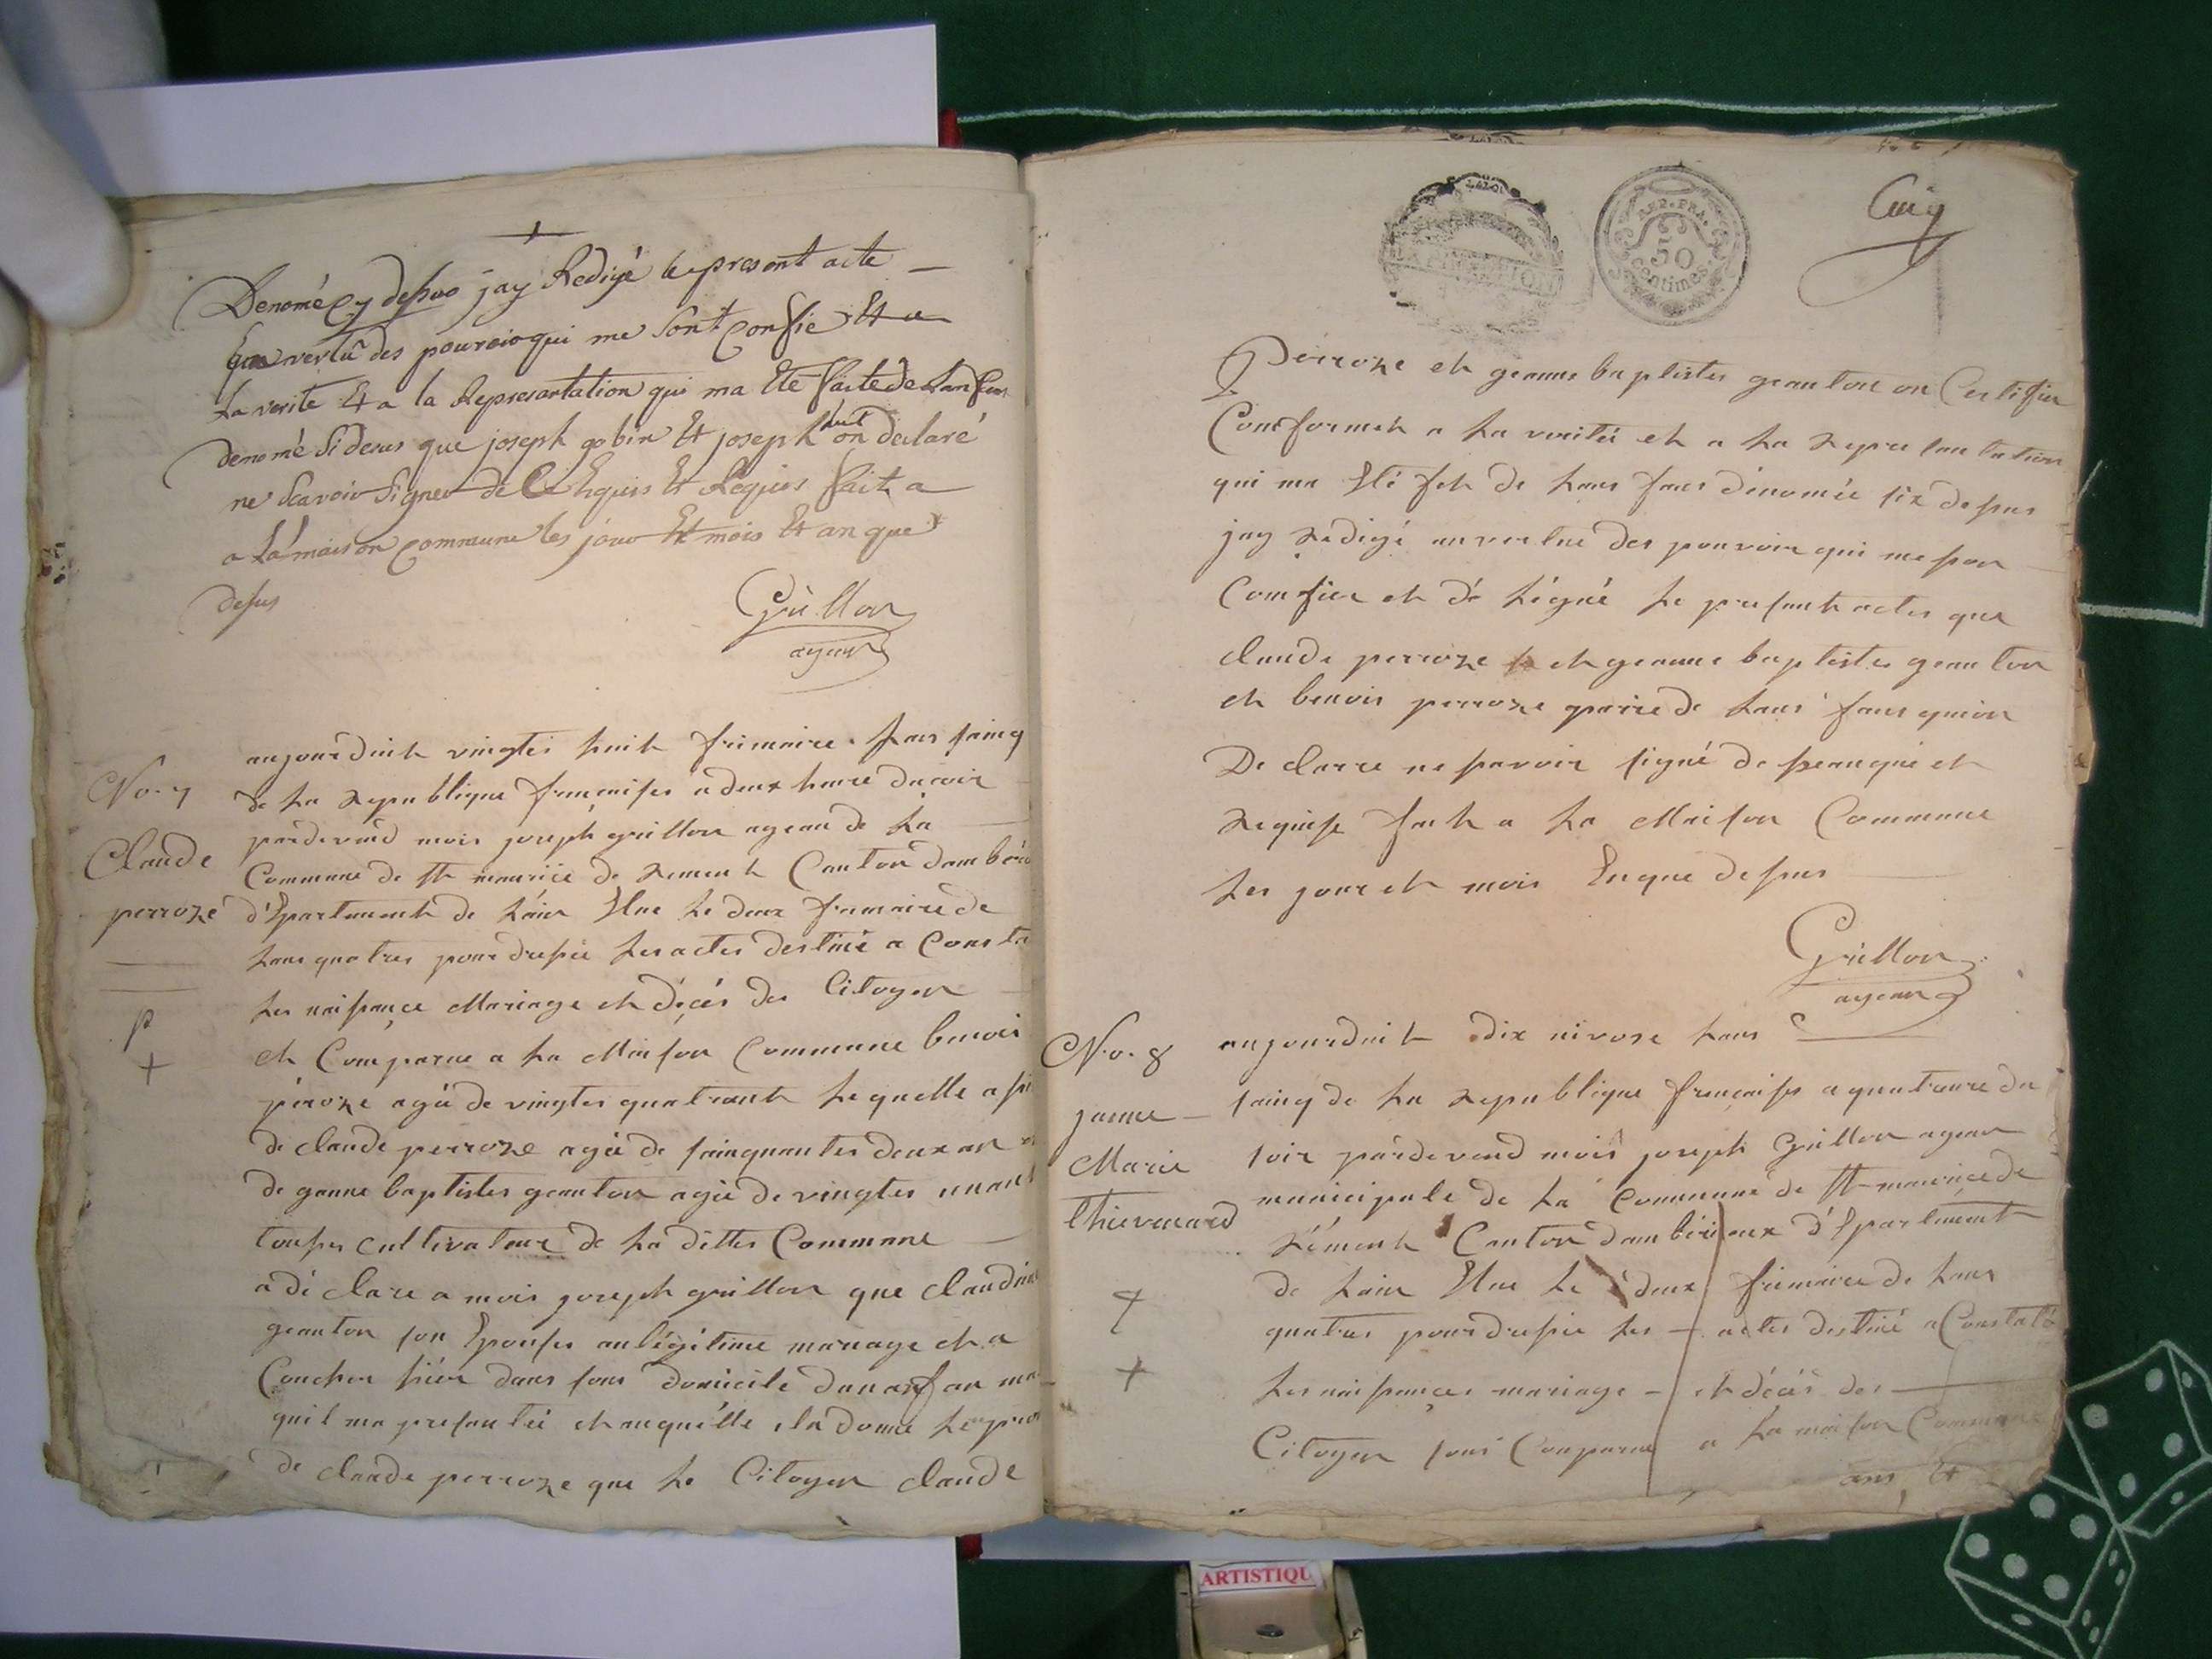 Denomé cy desus jay Redigé le present acte
En vertu des pouvoir qui me Sont confie Et a
La verité Et a la Represantation qui ma Eté faite de Lanfan
denomé Sidesus que joseph gobin Et joseph on declaré
ne Scavoir Signer de Ce Enquis Et Requis fait a
a La maison commune les jour Et mois Et an que
desus
Guillon
agean
No. 7
Claude
perroze
p
aujourduit vingtes huit frimaire Lans sainq
de La Republique françaises a deux heure du soir
pardevand mois joseph guillon agean de La
Commune de st mauricé de Rement Canton dambérie
d'Epartement de Lain Elue Le deux frimaire de
Lans quatres pour dresée Les actes destiné a Consta
Les naissançe Mariage et déçés des Citoyen
et Comparue a La Maison Commune benoi
péroze agée de vingtes quatreant Lequelle
de claude perroze agée de sainquantes deux an
de ganne baptistes geanton agée de vingtes unant
touses cultivateur de La dittes Commune
a déclare a mois joseph guillon que claudine
geanton son Epouses an légitime mariage et a
Coucher hiér dans sons domicile dunanfan
quil ma presantéi et auquélle ila donné Le
de claude perroze que Le Citoyen claude
Cinq
REP. FRA.
50
centimes
Perroze et geanne baptistes geanton on Certifier
Comformet a La vérité et a La Represantation
qui ma Eté fet de Lans fans dénomée six desus
jay Rédigé anvertue des pouvoir qui me son
Comfier et dé Ligné Le presant actes que
claude perroze et geanne baptistes geanton
et benois perroze paire de Lans fans quion
De clarre ne savoir signé de seanquie et
Requise fait a La Maison Commune
Les jour et mois Enque desus
Guillon
agean
No. 8
janne
Marie
thievenard
aujourduit dix nivose Lans
sainq de La Republique françaises a quatreure du
soir pardevand mois joseph Guillon agean
municipale de La Commune de st mauricede
Rément Canton dambérieux d'Epartement
de Lain Elue Le deux frimaire de Lans
quatres pour dresée Les actes destiné a Constaté
Les naissançes mariage et déçés des
Citoyen sons Comparue a La maison Commune
ans Et
ARTISTIQU